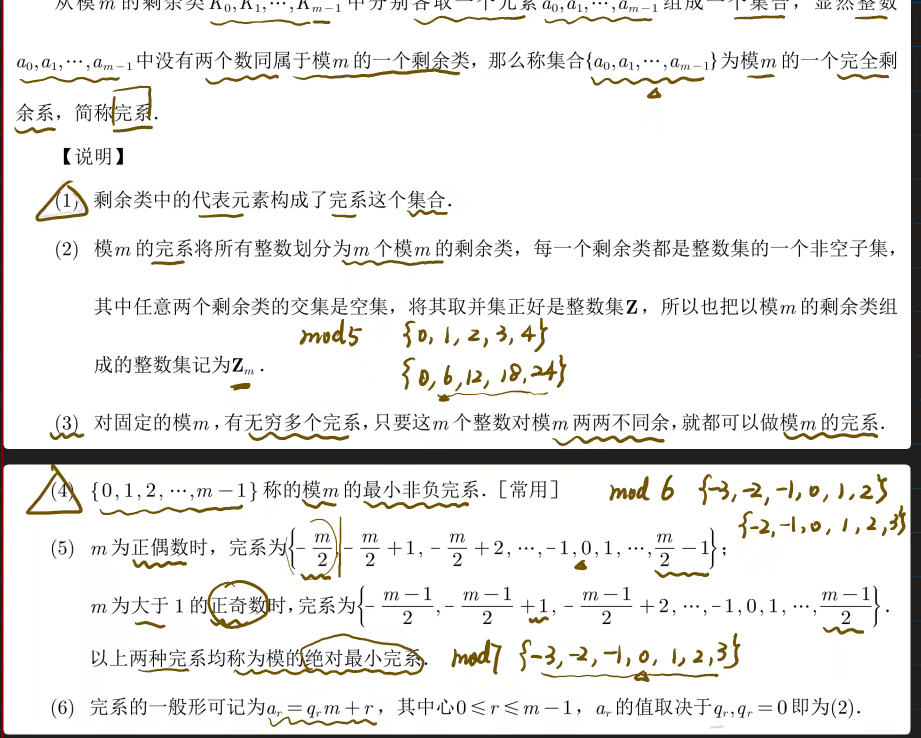 从模m的剩余类K₀,K₁,⋯,Kₘ₋₁中分别各取一个元素a₀,a₁,⋯,aₘ₋₁组成一个集合，显然整数
a₀,a₁,⋯,aₘ₋₁中没有两个数同属于模m的一个剩余类，那么称集合{a₀,a₁,⋯,aₘ₋₁}为模m的一个完全剩
余系，简称完系.
【说明】
(1) 剩余类中的代表元素构成了完系这个集合.
(2) 模m的完系将所有整数划分为m个模m的剩余类，每一个剩余类都是整数集的一个非空子集，
其中任意两个剩余类的交集是空集，将其取并集正好是整数集Z，所以也把以模m的剩余类组
mod5 {0,1,2,3,4}
成的整数集记为Zₘ.
{0,6,12,18,24}
(3) 对固定的模m,有无穷多个完系,只要这m个整数对模m两两不同余,就都可以做模m的完系.
(4) {0,1,2,⋯,m−1}称的模m的最小非负完系.［常用］ mod 6 {-3,-2,-1,0,1,2}
{-2,-1,0,1,2,3}
(5) m为正偶数时，完系为{−m/2,−m/2+1,−m/2+2,⋯,−1,0,1,⋯,m/2−1}；
m为大于1的正奇数时,完系为{−(m−1)/2,−(m−1)/2+1,−(m−1)/2+2,⋯,−1,0,1,⋯,(m−1)/2}.
以上两种完系均称为模的绝对最小完系. mod7 {-3,-2,-1,0,1,2,3}
(6) 完系的一般形可记为aᵣ=qᵣm+r，其中心0≤r≤m−1，aᵣ的值取决于qᵣ,qᵣ=0即为(2).